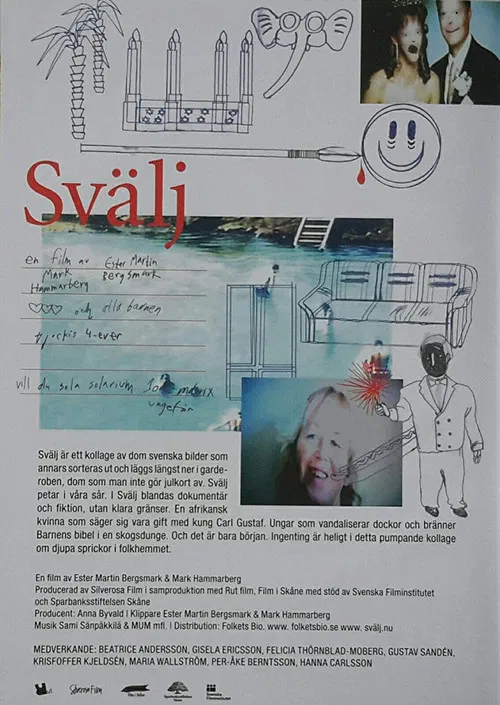 Svälj
en film av Ester Martin
Mark Bergsmark
Hammarberg
och alla barnen
tjockis 4-ever
vill du sola solarium
ungefär
Svälj är ett kollage av dom svenska bilder som
annars sorteras ut och läggs längst ner i garde-
roben, dom som man inte gör julkort av. Svälj
petar i våra sår. I Svälj blandas dokumentär
och fiktion, utan klara gränser. En afrikansk
kvinna som säger sig vara gift med kung Carl Gustaf. Ungar som vandaliserar dockor och bränner
Barnens bibel i en skogsdunge. Och det är bara början. Ingenting är heligt i detta pumpande kollage
om djupa sprickor i folkhemmet.
En film av Ester Martin Bergsmark & Mark Hammarberg
Producerad av Silverosa Film i samproduktion med Rut film, Film i Skåne med stöd av Svenska Filminstitutet
och Sparbanksstiftelsen Skåne
Producent: Anna Byvald | Klippare Ester Martin Bergsmark & Mark Hammarberg
Musik Sami Sänpäkkilä & MUM mfl. | Distribution: Folkets Bio. www.folketsbio.se www.svälj.nu
MEDVERKANDE: BEATRICE ANDERSSON, GISELA ERICSSON, FELICIA THÖRNBLAD-MOBERG, GUSTAV SANDÉN,
KRISFOFFER KJELDSÉN, MARIA WALLSTRÖM, PER-ÅKE BERNTSSON, HANNA CARLSSON
Silverosa Film